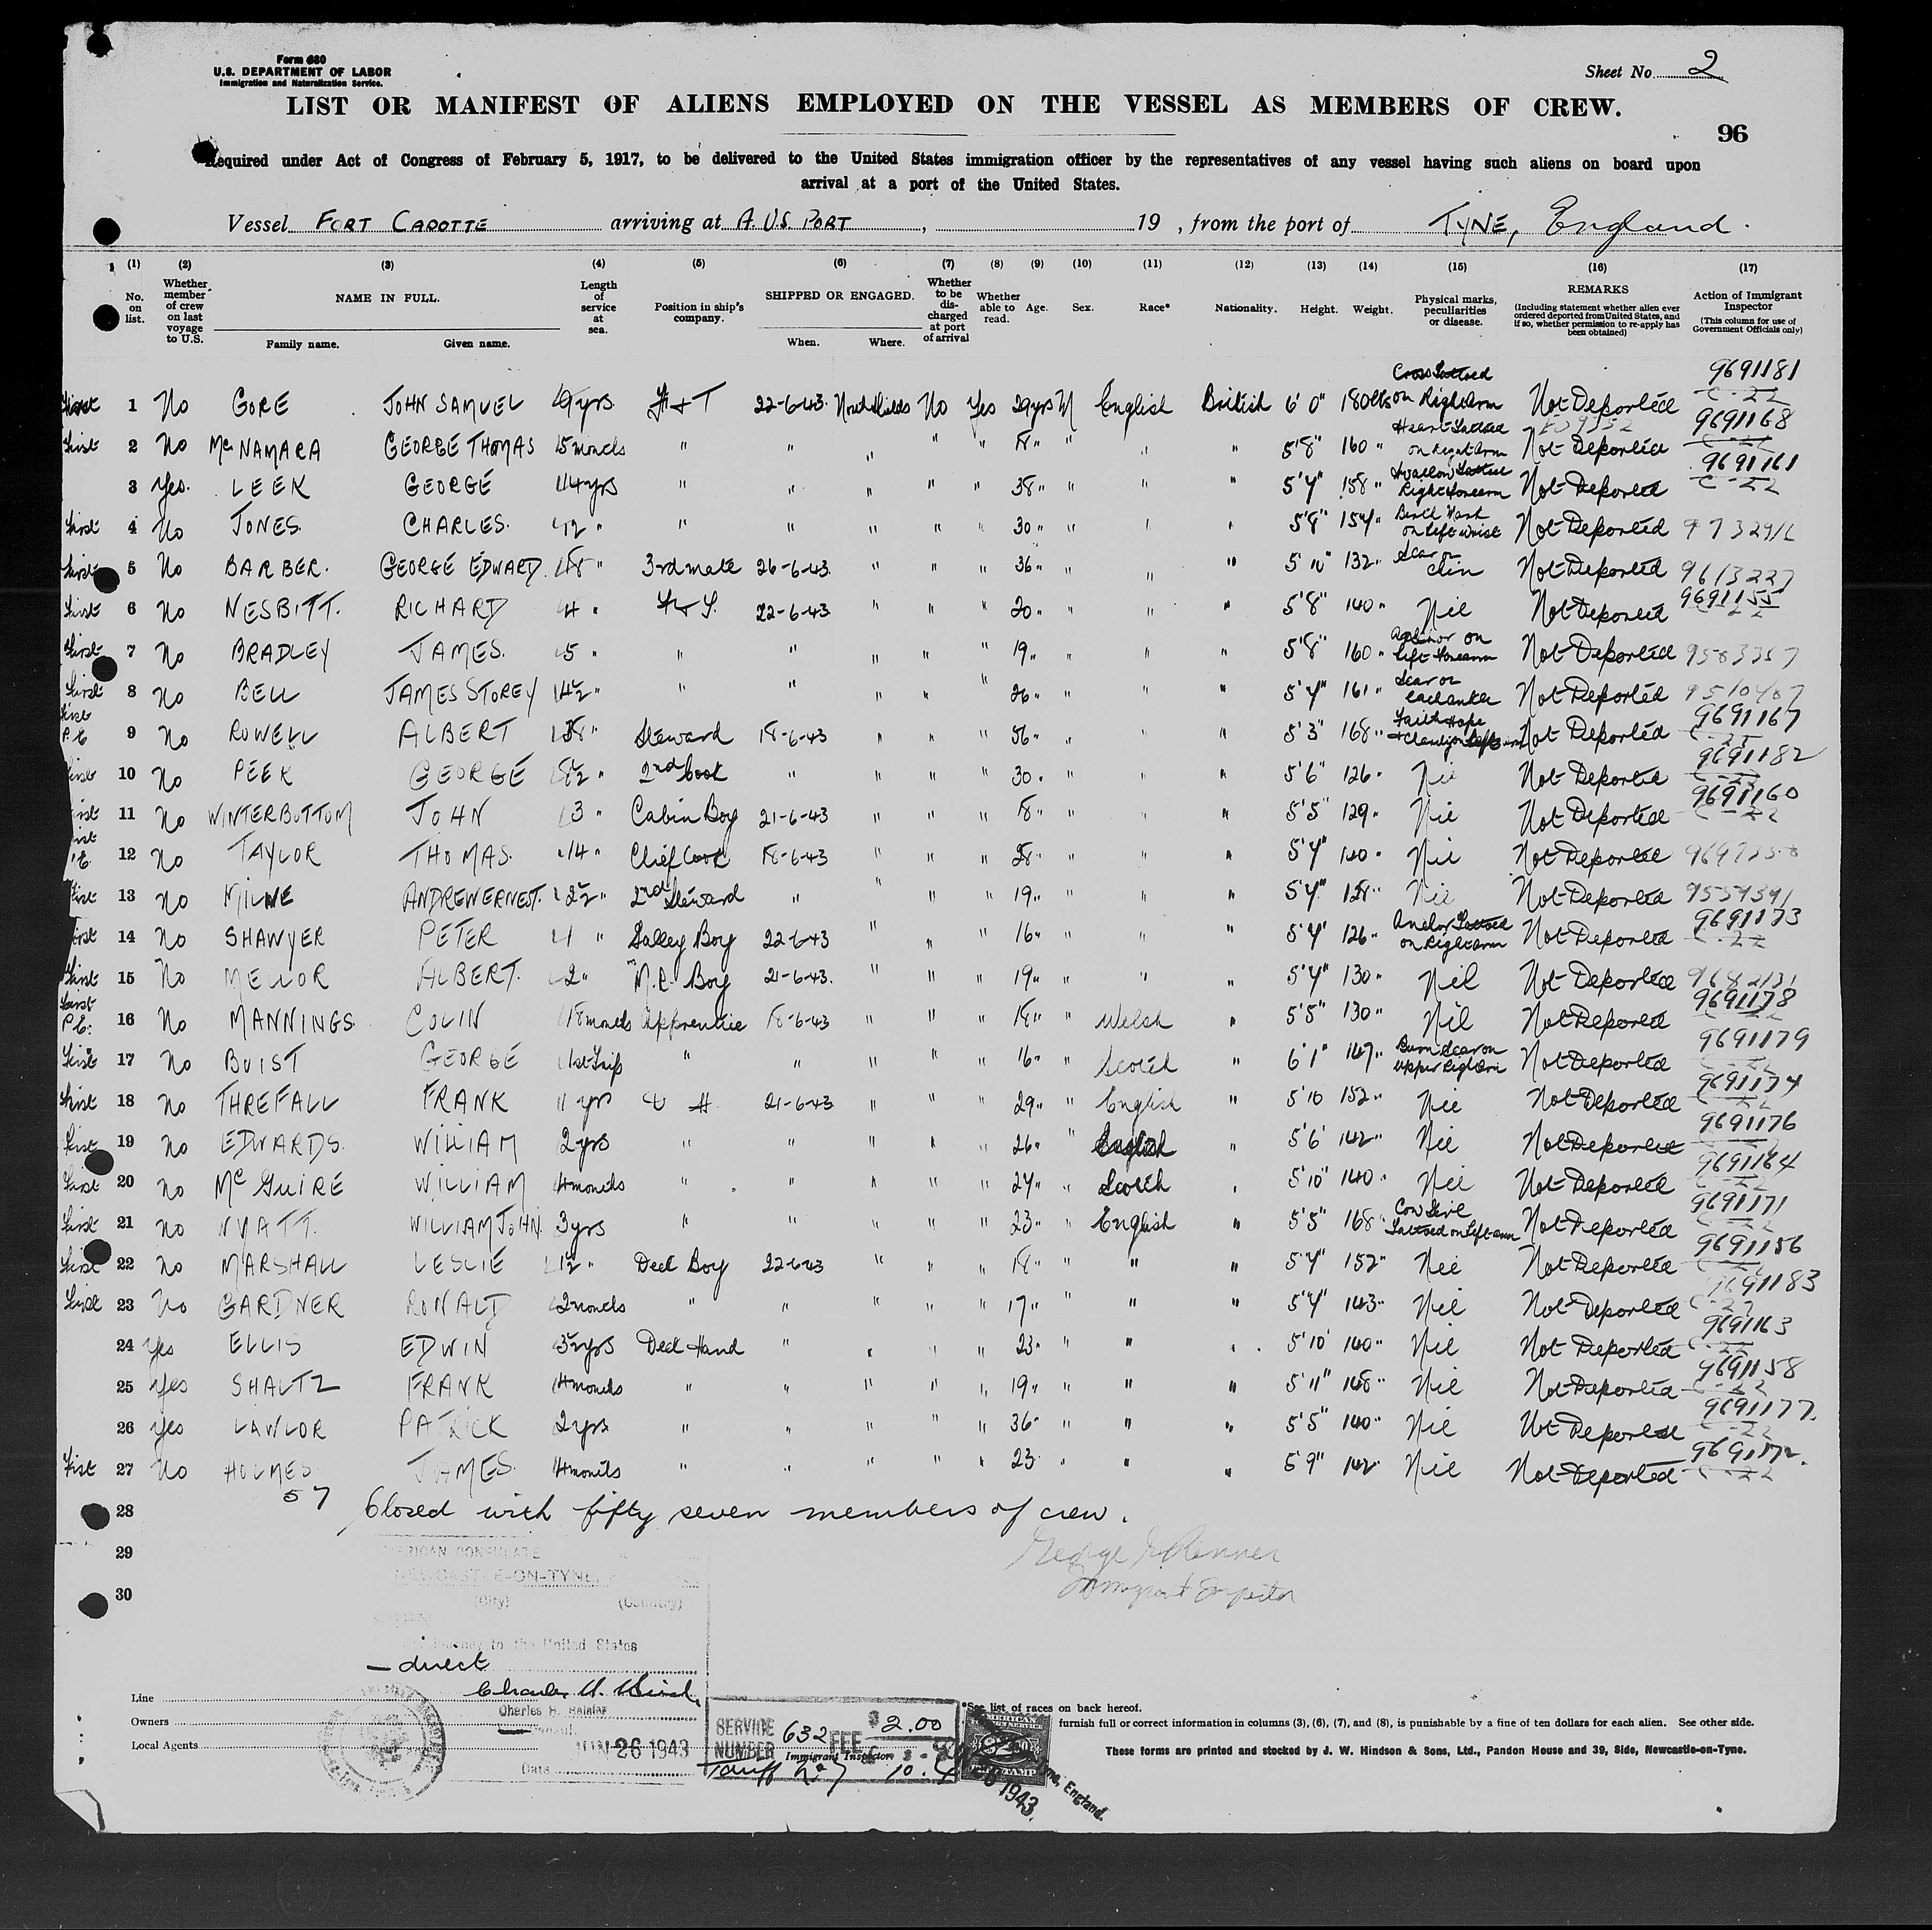 Form 680
U.S. DEPARTMENT OF LABOR
Immigration and Naturalization Service.
Sheet No. 2
LIST OR MANIFEST OF ALIENS EMPLOYED ON THE VESSEL AS MEMBERS OF CREW.
96
Required under Act of Congress of February 5, 1917, to be delivered to the United States immigration officer by the representatives of any vessel having such aliens on board upon
arrival at a port of the United States.
Vessel FORT CADOTTE arriving at A. U.S. PORT , 19 , from the port of TYNE, England.
(1) (2) (3) (4) (5) (6) (7) (8) (9) (10) (11) (12) (13) (14) (15) (16) (17)
No. on list. Whether member of crew on last voyage to U.S. NAME IN FULL. Family name. Given name. Length of service at sea. Position in ship's company. SHIPPED OR ENGAGED. When. Where. Whether to be discharged at port of arrival Whether able to read. Age. Sex. Race* Nationality. Height. Weight. Physical marks, peculiarities or disease. REMARKS (Including statement whether alien ever ordered deported from United States, and if so, whether permission to re-apply has been obtained) Action of Immigrant Inspector (This column for use of Government Officials only)
First 1 No GORE JOHN SAMUEL 9 yrs F & T 22-6-43 North Shields No Yes 29 yrs M English British 6' 0" 180 lbs Cross Tattooed on Right Arm Not Deported 9691181
First 2 No McNAMARA GEORGE THOMAS 15 months " " " " " 18 " " " " 5'8" 160 " Heart Tattooed on Right Arm Not Deported 9691168
3 Yes. LEEK GEORGE 14 yrs " " " " " 38 " " " " 5'4" 158 " Swallow Tattoo Right Forearm Not Deported 9691161
First 4 No JONES CHARLES. 12 " " " " " " 30 " " " " 5'8" 154 " Birth Mark on Left Wrist Not Deported
First 5 No BARBER. GEORGE EDWARD 18 " 3rd mate 26-6-43 " " " 36 " " " " 5'10" 132 " Scar on Chin Not Deported 9613227
First 6 No NESBITT. RICHARD 4 " 22-6-43 " " " 20 " " " " 5'8" 140 " Nil Not Deported 9691155
First 7 No BRADLEY JAMES. 5 " " " " " " 19 " " " " 5'8" 160 " Anchor on Left Forearm Not Deported 9583357
First 8 No BELL JAMES STOREY 4½ " " " " " " 26 " " " " 5'4" 161 " Scar on each ankle Not Deported 9510407
First 9 No ROWELL ALBERT 38 " Steward 18-6-43 " " " 56 " " " " 5'3" 168 " Faith Hope & Charity on Left arm Not Deported 9691167
First 10 No PEEK GEORGE 8½ " 2nd Cook " " " " 30 " " " " 5'6" 126 " Nil Not Deported 9691182
First 11 No WINTERBOTTOM JOHN 3 " Cabin Boy 21-6-43 " " " 18 " " " " 5'5" 129 " Nil Not Deported 9691160
First 12 No TAYLOR THOMAS. 14 " Chief Cook 18-6-43 " " " 28 " " " " 5'4" 140 " Nil Not Deported
First 13 No MILNE ANDREW ERNEST. 2½ " 2nd Steward " " " " 19 " " " " 5'4" 128 " Nil Not Deported 9559391
First 14 No SHAWYER PETER 1 " Galley Boy 22-6-43 " " " 16 " " " " 5'4" 126 " Anchor Tattooed on Right Arm Not Deported 9691173
First 15 No MELLOR ALBERT. 2 " M.R. Boy 21-6-43. " " " 19 " " " " 5'4" 130 " Nil Not Deported 9682131
First 16 No MANNINGS COLIN 18 months Apprentice 18-6-43 " " " 18 " " Welsh " 5'5" 130 " Nil Not Deported 9691178
First 17 No BUIST GEORGE 1st Trip " " " " " 16 " " Scotch " 6'1" 147 " Burn Scar on Upper Right Arm Not Deported 9691179
First 18 No THREFALL FRANK 1 yr D H 21-6-43 " " " 29 " " English " 5'10 152 " Nil Not Deported 9691174
First 19 No EDWARDS. WILLIAM 2 yrs " " " " " 26 " " English " 5'6 142 " Nil Not Deported 9691176
First 20 No McGUIRE WILLIAM 4 months " " " " " 24 " " Scotch " 5'10" 140 " Nil Not Deported 9691164
First 21 No WYATT. WILLIAM JOHN 3 yrs " " " " " 23 " " English " 5'5" 168 " Cow Girl Tattooed on Left arm Not Deported 9691171
First 22 No MARSHALL LESLIE 1½ " Deck Boy 22-6-43 " " " 18 " " " " 5'4" 152 " Nil Not Deported 9691156
First 23 No GARDNER RONALD 2 months " " " " " 17 " " " " 5'4" 143 " Nil Not Deported 9691183
24 Yes ELLIS EDWIN 3½ yrs Deck Hand " " " " 23 " " " " 5'10" 140 " Nil Not Deported 9691163
25 Yes SHALTZ FRANK 14 months " " " " " 19 " " " " 5'11" 148 " Nil Not Deported 9691158
26 Yes LAWLOR PATRICK 2 yrs " " " " " 36 " " " " 5'5" 140 " Nil Not Deported 9691177
First 27 No HOLMES JAMES 14 months " " " " " 23 " " " " 5'9" 142 Nil Not Deported 9691172
57
28 Closed with fifty seven members of crew.
29
30
AMERICAN CONSULATE
NEWCASTLE-ON-TYNE
(City) (Country)
journey to the United States
direct
Immigrant Inspector
Line
Owners
Local Agents
Consul.
JUN 26 1943
Date
SERVICE NUMBER 632 FEE $ 2.00
Immigrant Inspector.
Tariff No 7
*See list of races on back hereof.
furnish full or correct information in columns (3), (6), (7), and (8), is punishable by a fine of ten dollars for each alien. See other side.
These forms are printed and stocked by J. W. Hindson & Sons, Ltd., Pandon House and 39, Side, Newcastle-on-Tyne.
1943
England.